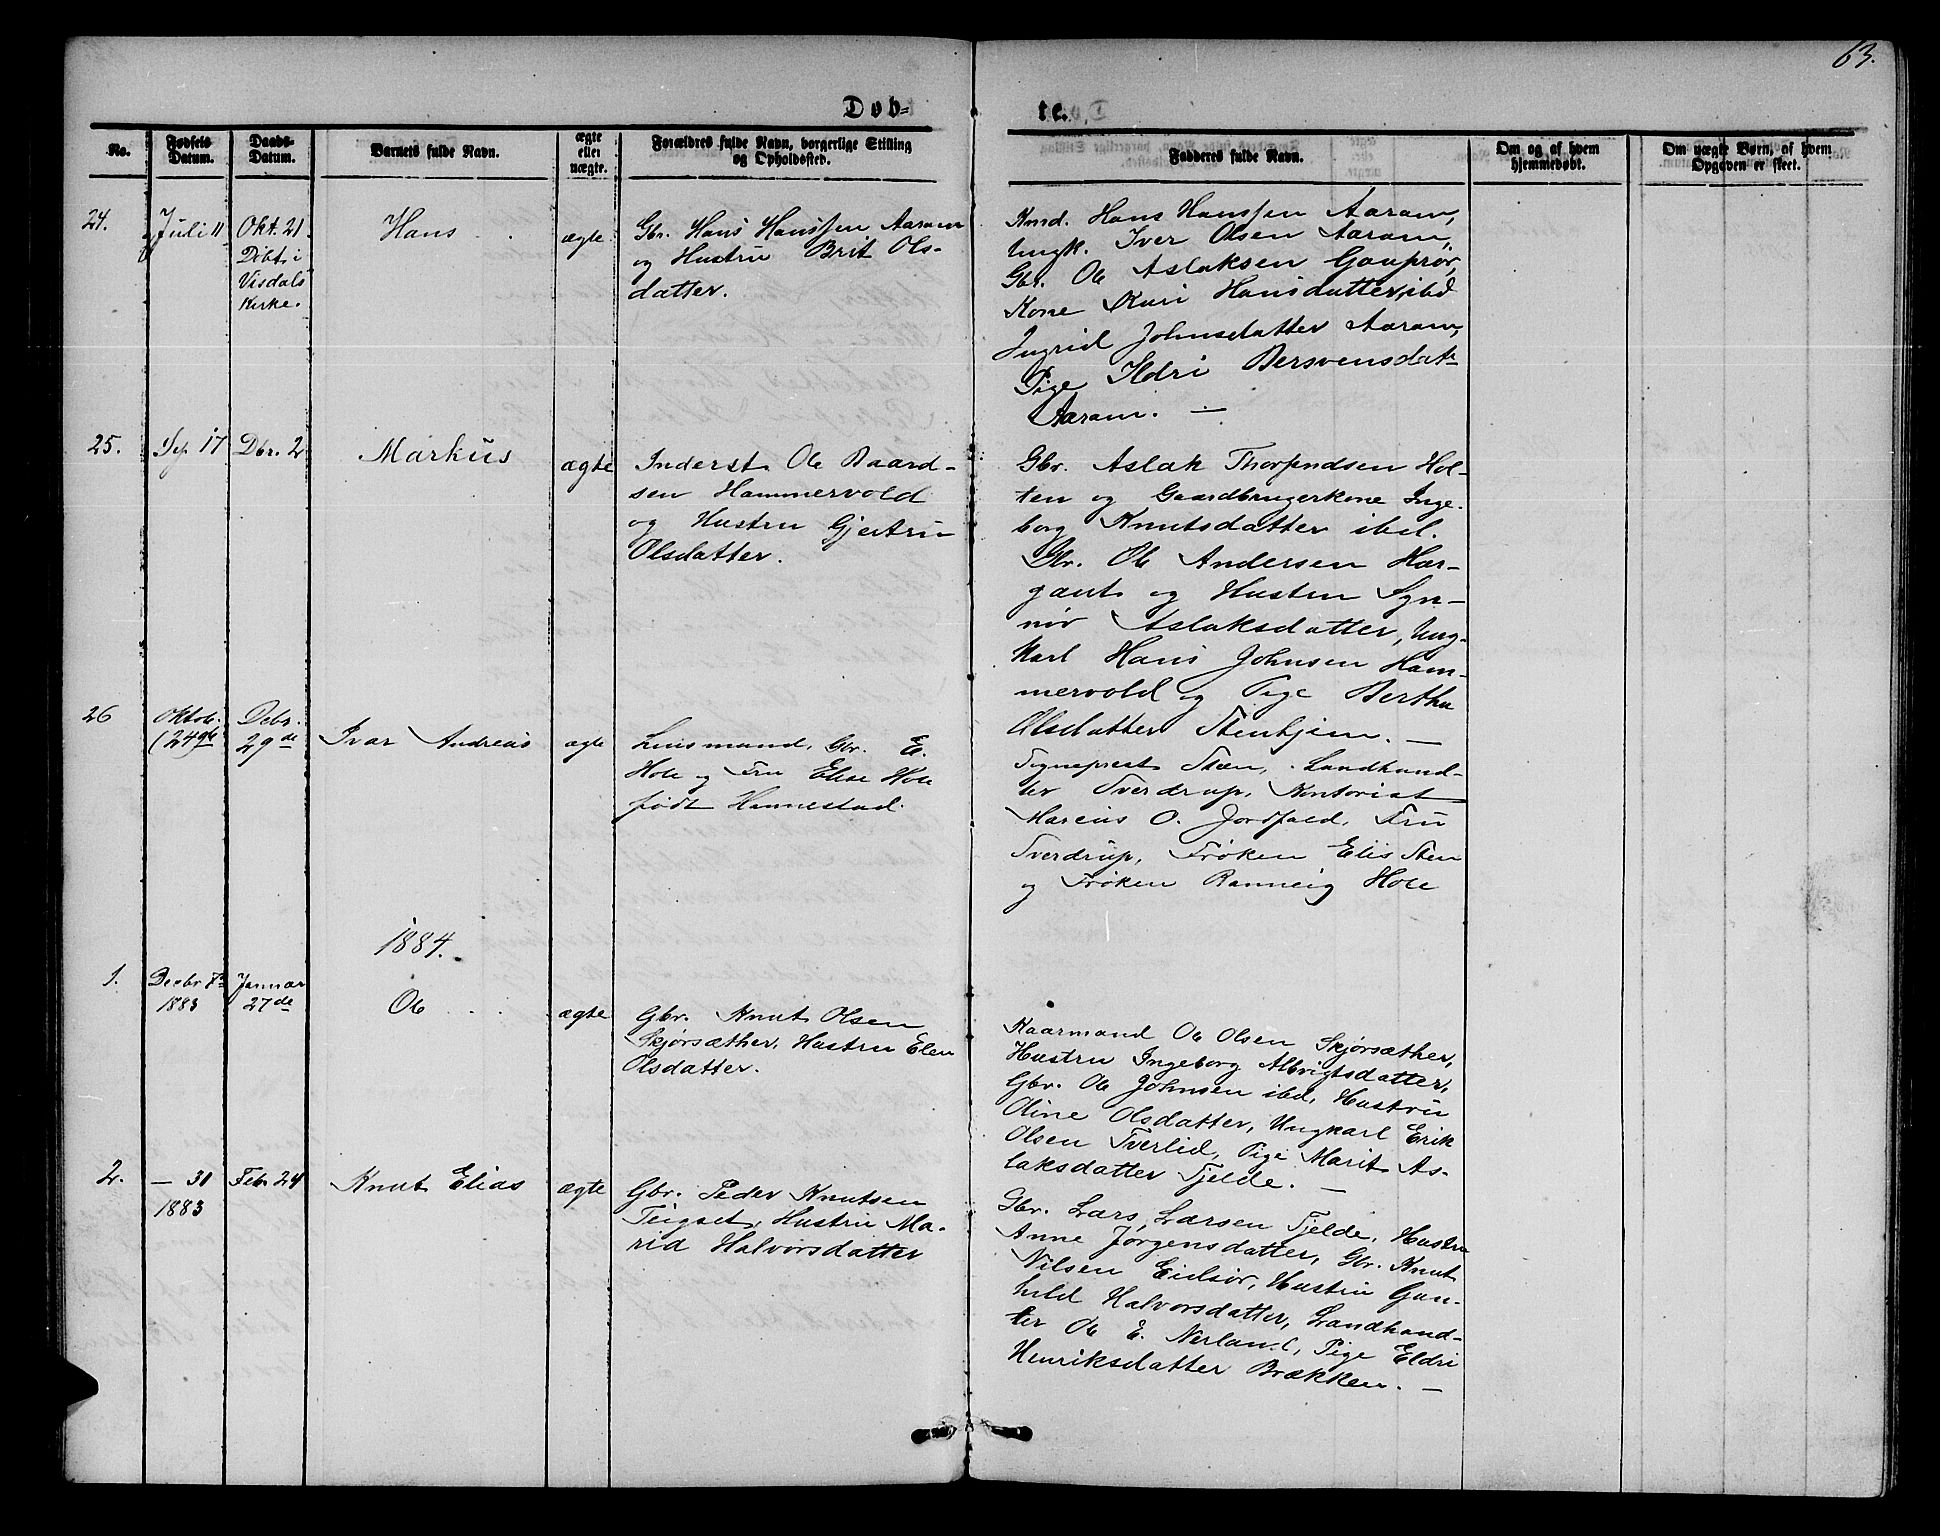 63.
Døb=
te.
No.
Fødsels Datum.
Daabs-Datum.
Barnets fulde Navn.
ægte eller uægte.
Forældres fulde Navn, borgerlige Stilling og Opholdssted.
Fadderes fulde Navn.
Om og af hvem hjemmedøbt.
Om uægte Børn, af hvem Opgaven er skeet.
24.
Juli 11
Okt. 21
Døbt i
Visdals
Kirke.
Hans
ægte
Gbr. Hans Hanssen Aaram
og Hustru Brit Ols-
datter.
Kmd. Hans Hanssen Aaram,
Ungk. Iver Olsen Aaram,
Gbr. Ole Aslaksen Gauprør,
Kone Kari Hansdatter, ibd
Ingrid Johnsdatter Aaram,
Pige Ildri Bersvensdat-
Aaram. —
25.
Sep 17
Dbr. 2
Markus
ægte
Inderst Ole Baard-
sen Hammervold
og Hustru Gjertru
Olsdatter.
Gbr. Aslak Thorfindsen Hol-
ten og Gaardbrugerkone Inge-
borg Knutsdatter ibd.
Gbr. Ole Andersen Har-
gaut og Hustru Syn-
nøv Aslaksdatter, Ung-
karl Hans Johnsen Ham-
mervold og Pige Bertha
Olsdatter Stenhjem. —
26
Oktob.
(24de
Debr.
29de
Ivar Andreas
ægte
Lensmand, Gbr. E.
Hole og Fru Elise Hole
født Hannestad.
Sogneprest Steen, Landhand-
ler Sverdrup, Kontorist
Marcus O. Jordfald, Fru
Sverdrup, Frøken Elis Sten
og Frøken Ranneig Hole
1884.
1.
Decbr 7de
1883
Januar
27de
Ole
ægte
Gbr. Knut Olsen
Skjørsæther, Hustru Elen
Olsdatter.
Kaarmand Ole Olsen Skjørsæther,
Hustru Ingeborg Albrigtsdatter,
Gbr. Ole Johnsen ibd, Hustru
Oline Olsdatter, Ungkarl Erik
Olsen Tverlid, Pige Marit As-
laksdatter Fjelde. —
2.
— 31
1883
Febr 24
Knut Elias
ægte
Gbr. Peder Knutsen
Teigset, Hustru Ma-
rid Halvorsdatter
Gbr. Lars Larsen Fjelde, Hustru
Anne Jørgensdatter, Gbr. Knut
Nilsen Eidsør, Hustru Gun-
hild Halvorsdatter, Landhand-
ler Ole E. Nerland, Pige Eldri
Henriksdatter Brækken. —